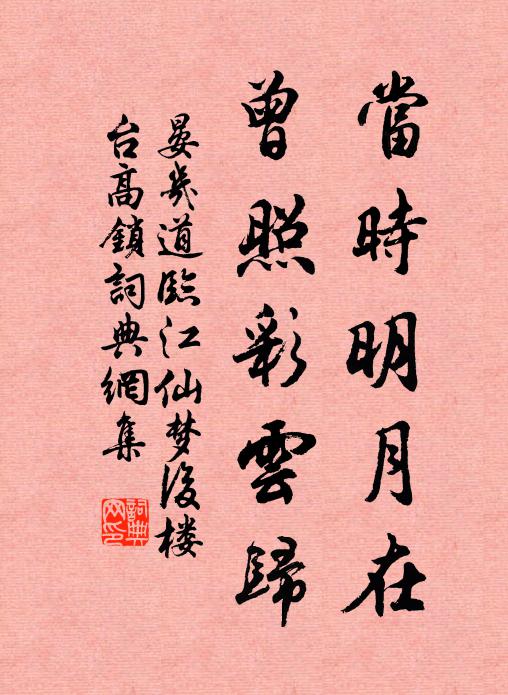 當時明月在
曾照彩雲歸
晏幾道臨江仙梦後楼
台高鎖詞典網集
詞典
网印